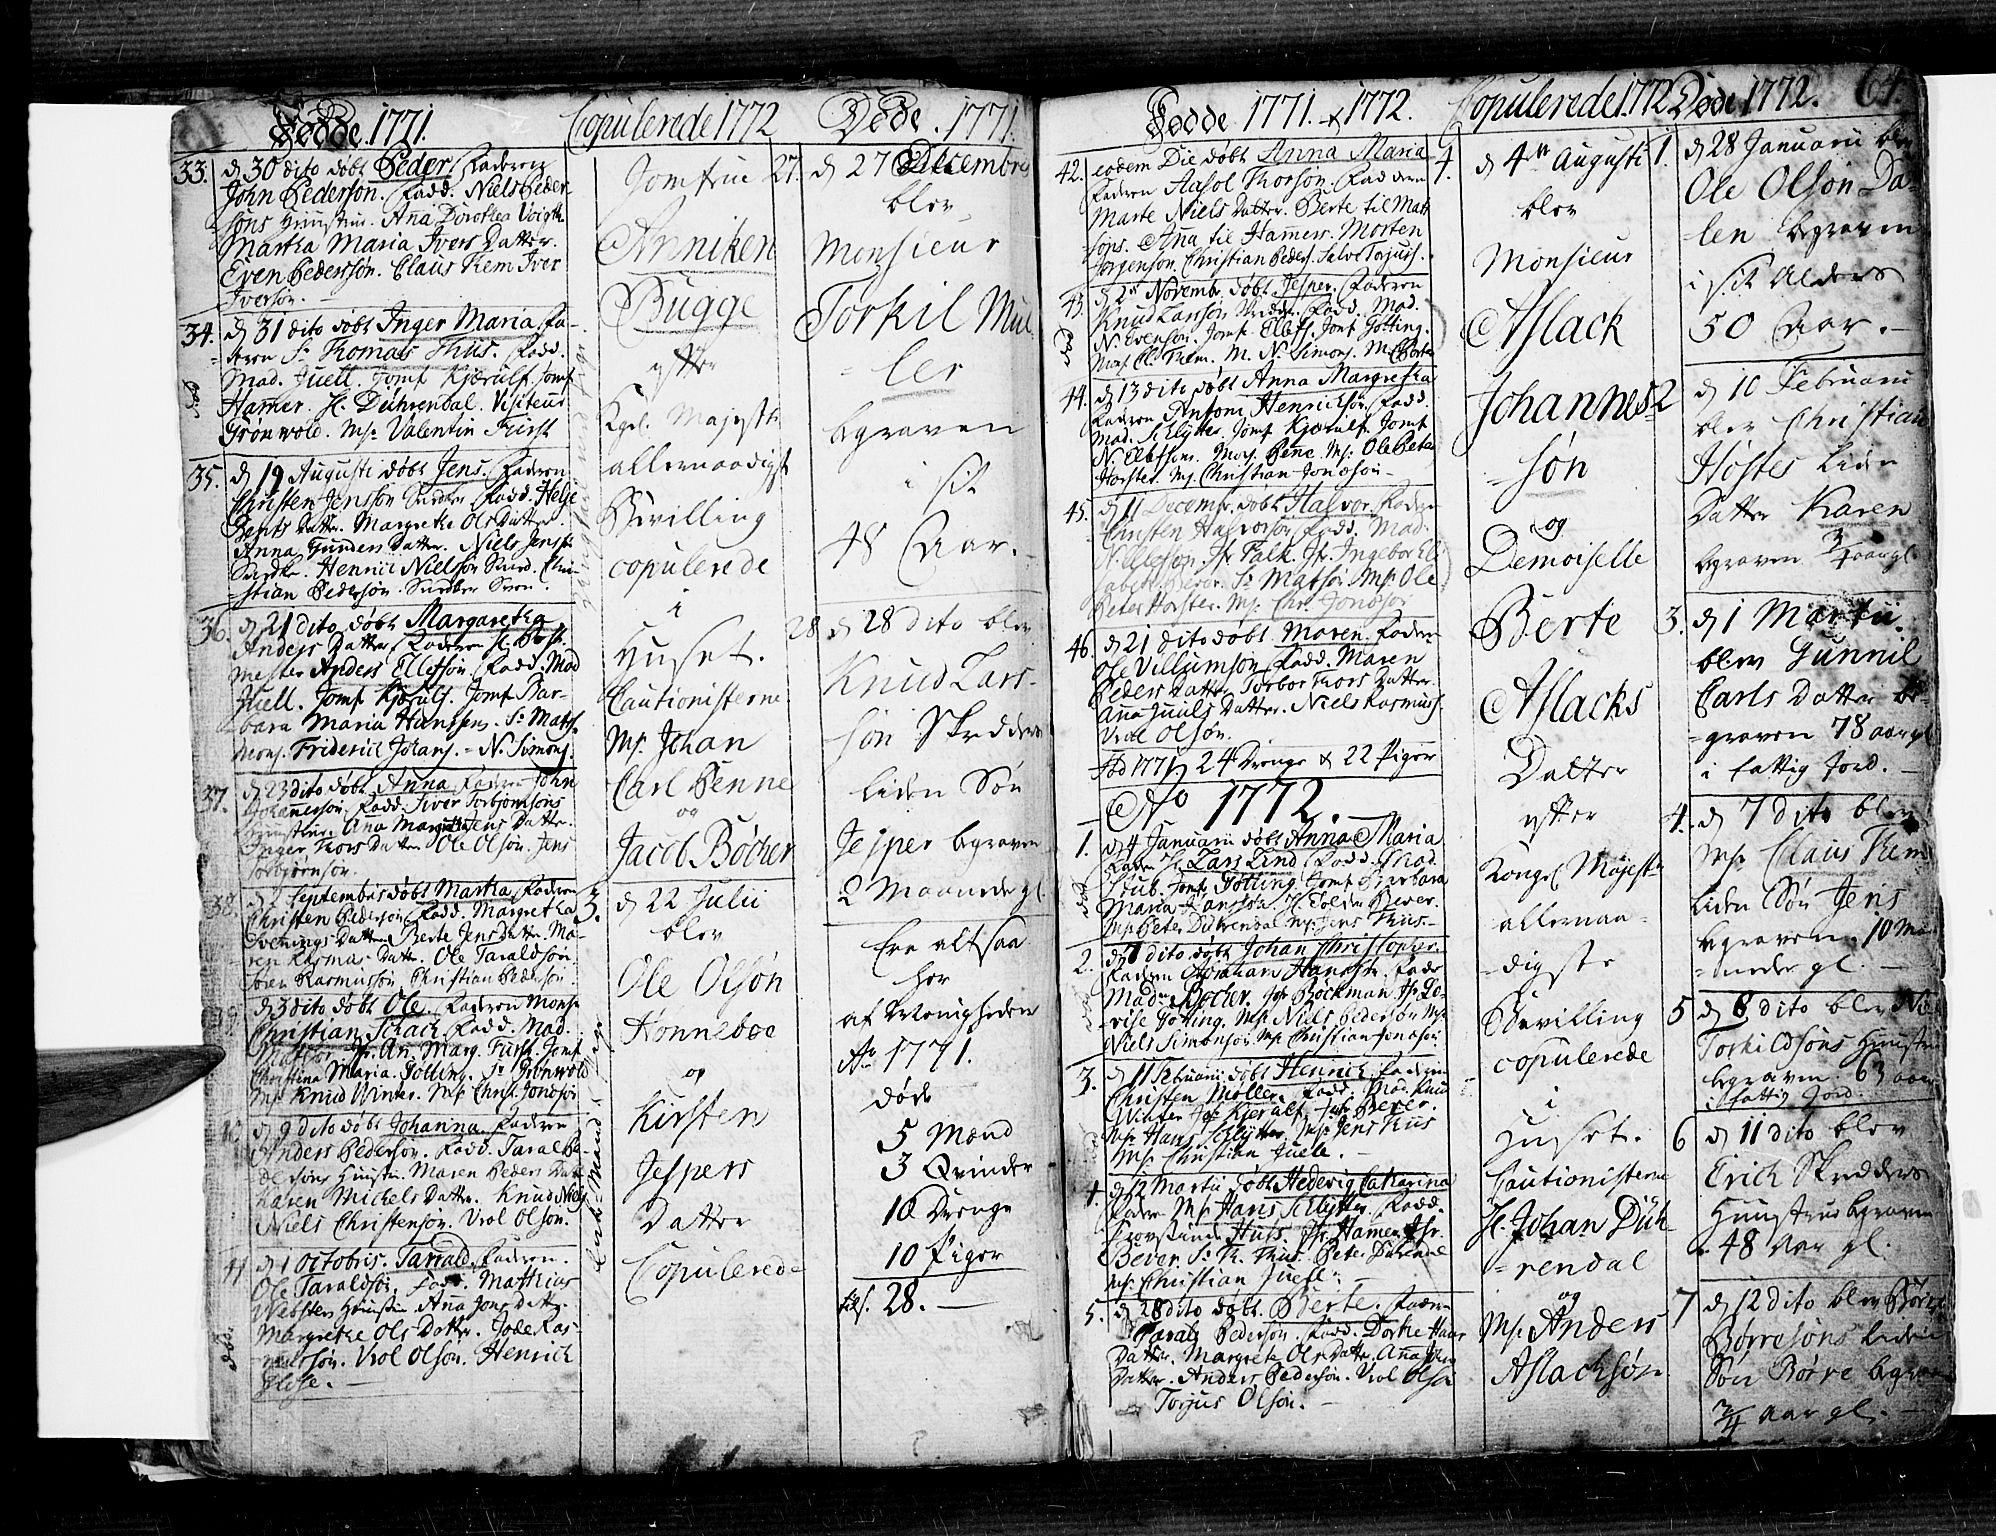 Fødde. 1771.
33. d 30 dito døbt Peder, Faderen
John Pedersøn. Fadd. Niels Peder-
søns Huustrue. Ana Dorothea Voigth
Martha Maria Ivers Datter.
Even Pederssøn. Claus Kem Iver
Iversøn.
34. d 31 dito døbt Inger Maria, Fa-
deren Sr. Thomas Thus. Fadd.
Mad. Juell. Jomf Kjærulf Jomf
død
Hammer. H. Dührendal. Visiteur
Grønwold. Msr Valentin Fürst
35. d 19 Augusti døbt Jens. Faderen
Christen Jenssøn. Fadd. Helje
Bents Datter. Margrethe Ols Datter.
Anna Gunders Datter. Niels Jens
Henrich Nielsøn Chri-
stian Pedersøn.
36. d 21 dito døbt Margaretha
Anders Datter, Faderen
mester Anders Ellefsøn. Fadd. Mad
Juell. Jomf Kjærulf. Jomf Bar-
bara Maria Hanssen. Sr Math.
Friderich Johans. N. Simons.
37. d 23 dito døbt Anna Faderen John
Johannessøn. Fadd. Siver Torbjørnsøns
Huustrue. Ana Jens Datter.
Inger Thors Datter Ole Olsøn. Jens
Torbjørnsøn.
38. d 2 Septembris døbt Martha, Faderen
Christen Pedersøn, Fadd. Margretha
Evenings Datter Berte Jens Datter. Ma-
ren Rasmus Datter. Ole Taraldsøn
Søren Rasmussøn Christian Pedersøn.
39. d 3 dito døbt Ole. Faderen Monsr
Christian Schach. Fadd. Mad.
An. Marg. Fürst. Jomf
Christina Maria Gøtting. Sr Grønwold
Msr Knud Winter. Msr Christ. Jonasøn
40. d 9 dito døbt Johanna. Faderen
Anders Pedersøn. Fadd. Taral Pe-
dersøns Huustru. Maren Peders Datter
Karen Michels Datter. Knud Niels
Niels Christensøn. Vrol Olsøn.
41. d 1 Octobris. Tarrald. Faderen.
Ole Taraldsøn. Fadd. Mathias
Websters Huustru Ana Jons Datter.
død.
Margrethe Ols Datter. Jode Ras-
mussøn. Vrol Olsøn. Henrich
Close.
Copulerede 1772
Jomfrue
Anniken
Bugge
efter
Kgel. Majesth
allernaadigst
Bevilling
copulerede
i
Huset.
Cautionisterne
Msr Johan
Carl Benne
og
Jacob Bøcher
3. d 22 Julii
blev
Ole Olsøn
Honneboe
og
Kirsten
Jespers
Datter
Copulerede
Døde. 1771.
27. d 27 Decembris
blev
Monsieur
Torkil Mül
ler
begraven
i sit
48 Aar.
28 d 28 dito blev
Knud Lars-
søn Skredders
liden Søn
Jesper begraven
2 Maaneder gl.
Ere altsaa
her
af Menigheden
Ao 1771.
døde
5 Mænd
3 Qvinder
10 Drenge
10 Piger
tils. 28.
Fødde 1771. & 1772.
42. eodem Die døbt Anna Maria
Faderen Aasol Thorsøn. Fadderne
Marte Niels Datter. Berte til Matt
søns. Ana til Hamers. Morten
Jørgensøn. Christian Peders. Selve Torjusd.
43. d 2 Novembr døbt Jesper. Faderen
død
Knud Larssøn Fadd. Mad.
N. Evensøn. Jomf. Ellefs. Jomf Gøtting.
Msr Cl. Them. M. N. Simons.
44. d 13 dito døbt Anna Margretha
Faderen Antoni Henrichsøn. Fadd.
Mad. Schlytter. Jomf Kjærulf Jomf
N. Ellefsen. Mons. Benc. Msr Ole Peter
Horster. Msr Christian Jonasøn
45. d 11 Decembr. døbt Halvor. Faderen
Christen Halvorsøn Fadd. Mad.
N. Ellefsøn. Jfr Falk. Jfr Ingebor Eli
sabeth Bever. Sr Matsøn. Msr Ole
Peter Horster. Msr Chr. Jonasøn
46. d 21 dito døbt Maren. Faderen
Ole Villumsøn Fadd. Maren
Peders Datter Torbor Thors Datter.
Ana Juuls Datter. Niels Rasmuss.
Vrol Olsøn.
Fød 1771 24 Drenge & 22 Piger
No 1772.
1. d 4 Januarii døbt Anna Maria
Faderen H. Lars Lind. Fadd. Mad.
død
Stub. Jomf Gøtting. Jomf Barbara
Maria Hanssøn. H. Tolder Bever.
Msr Peter Dührendal. Msr Jens Thus.
2. d 7 dito døbt Johan Christopher
Faderen Abraham Hanssøn. Fadd
Mad. Bøcher. Jfr Bøckman Jfr Lo-
vise Gøtting. Msr Niels Pedersøn Msr
Niels Simonsøn Msr Christian Jonasøn
3. d 11 Februarii døbt Hennich Faderen
Christen Møller. Fadd. Mad. Knud
Winter Jfr Kjærulf. Jfr Bever.
Msr Hans Schlytter. Msr Jens Thus
Msr Christian Juell.
4. d 12 Martii døbt Hedevig Catharina
Fader Msr Hans Schlytter. Fadd.
Huss. Jfr Hammer Jfr
Bever. Sr Th. Thus. Peter Dürendal
Msr Christian Juell.
5. d 28 dito døbt. Berte. Fader
Taralz Pedersøn. Fadd. Dorthe Hans
Datter. Margrete Ols Datter. Ana
Datter. Anders Pedersøn. Vrol Olsøn
Torjus Olsøn.
Copulerede 1772
4. d 4de Augusti
blev
Monsieur
Aslack
Johannes-
søn
og
Demoiselle
Berte
Aslacks
Datter
efter
Kongel Majestts
allernaa-
digste
Bevilling
copulerede
i
Huset.
Cautionisterne
H. Johan Düh-
rendal
og
Msr Anders
Aslacksøn
Døde 1772. 64.
1. d 28 Januarii blev
Ole Olsøn Da-
len begraven
i sit Alders
50 Aar.
2 d 10 Februarii
blev Christian
Høstes liden
Datter Karen
begraven 3/4 aar gl
3. d 1 Martii.
blev Gunnil
Carls Datter be-
graven 78 aar gl
i fattig Jord.
4. d 7 dito blev
Msr Claus Kem
liden Søn Jens
begraven. 10 Maa
neder gl.
5 d 8 dito blev
Torkildsøns Huustru
begraven. 63 aar
i fattig Jord.
6 d 11 dito blev
Erich Skredders
Huustrue begraven
48 Aar gl.
7 d 12 dito blev Børre
Børresøns liden
Søn Børre begraven
3/4 aar gl.